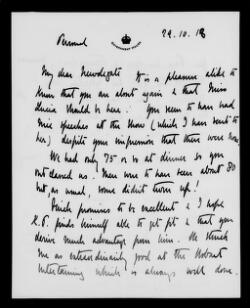 Personal
GOVERNMENT HOUSE
29.10.18
My dear Newdegate It is a pleasure alike to
know that you are about again & that Miss
should be here. You seem to have had
nice speeches at the show (which I have sent to
her) despite your impression that there were none
We had only 75 or so at dinner so you
out classed us. There were to have been about 80
but, as usual, some didn't turn up!
promises to be excellent & I hope
finds himself able to get fit & that you
derive much advantage from him. He struck
me as extraordinarily good at the Hobart
Entertaining which is always well done.